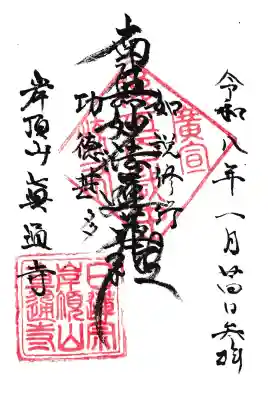 令和八年一月廿四日参拝
如説修行
南無妙法蓮華経
功徳甚多
岸頂山眞通寺
廣宣
日蓮宗
岸頂山
眞通寺